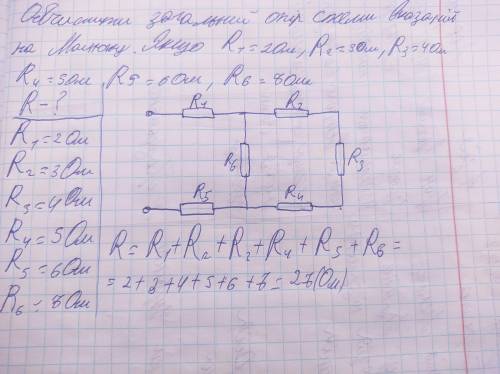 Обчислити загальний опір схеми вказаний
на Малюнку. Якщо R1=2Ом, R2=3Ом, R3=4Ом
R4=5Ом, R5=6Ом, R6=8Ом
R-?
R1=2Ом
R2=3Ом
R3=4Ом
R4=5Ом
R5=6Ом
R6=8Ом
R1
R2
R6
R3
R5
R4
R=R1+R2+R3+R4+R5+R6=
=2+3+4+5+6+8=28(Ом)